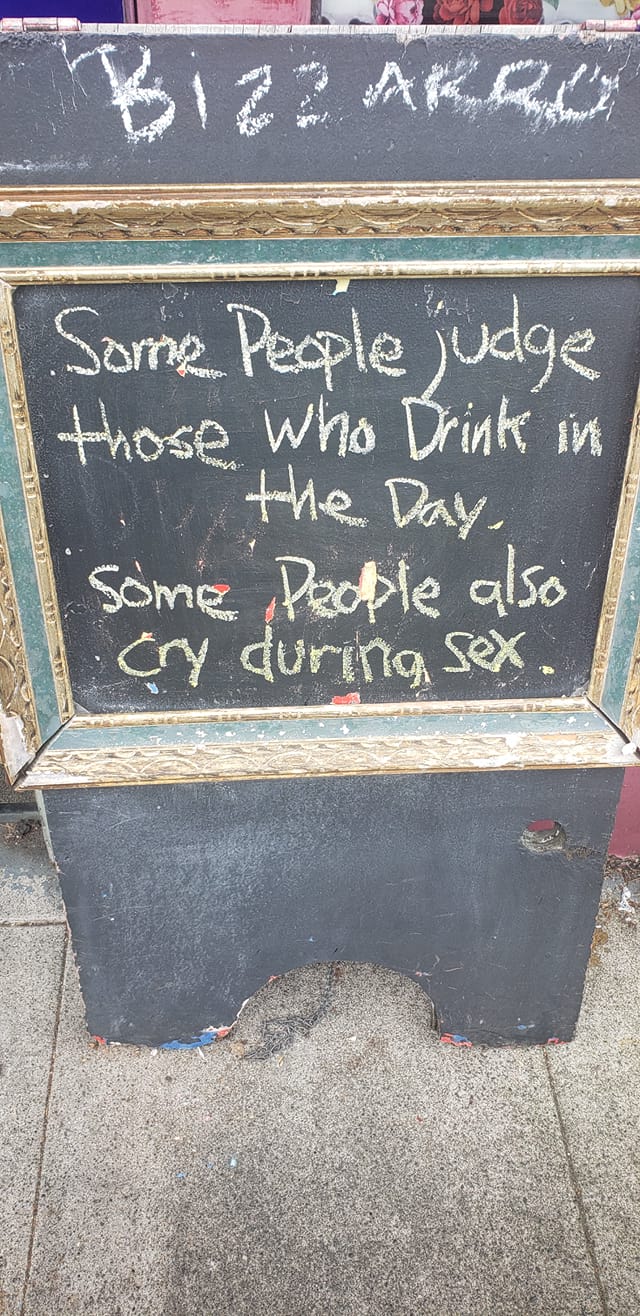 BizzARRO
Some People judge
those who Drink in
the Day.
Some People also
cry during sex.